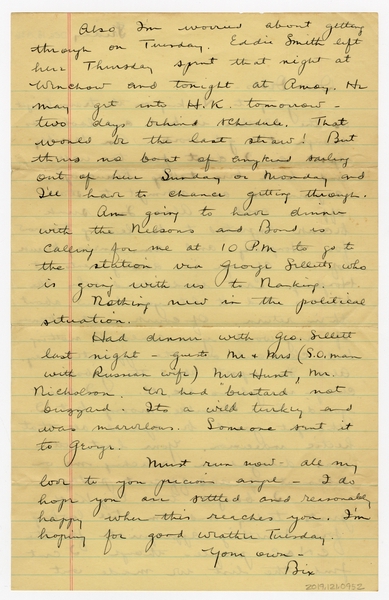 Also I'm worried about getting
through on Tuesday. Eddie Smith left
here Thursday spent that night at
Winchow and tonight at Amoy. He
may get into H.K. tomorrow -
two days behind schedule. That
would be the last straw! But
theres no boat of anykind sailing
out of here Sunday or Monday and
I'll have to chance getting through.
Am going to have dinner
with the Nelsons and Bond is
calling for me at 10 P.M to go to
the station via George Selletts who
is going with us to Nanking.
Nothing new in the political
situation.
Had dinner with Geo. Sellett
last night - guests Mr & Mrs (S.O. man
with Russian wife) Mrs Hunt, Mr.
Nicholson. We had bustard not
buzzard. Its a wild turkey and
was marvelous. Someone sent it
to George.
Must run now - all my
love to you precious angel - I do
hope you are settled and reasonably
happy when this reaches you. I'm
hoping for good weather Tuesday.
Your own -
Bix
2019.1260952